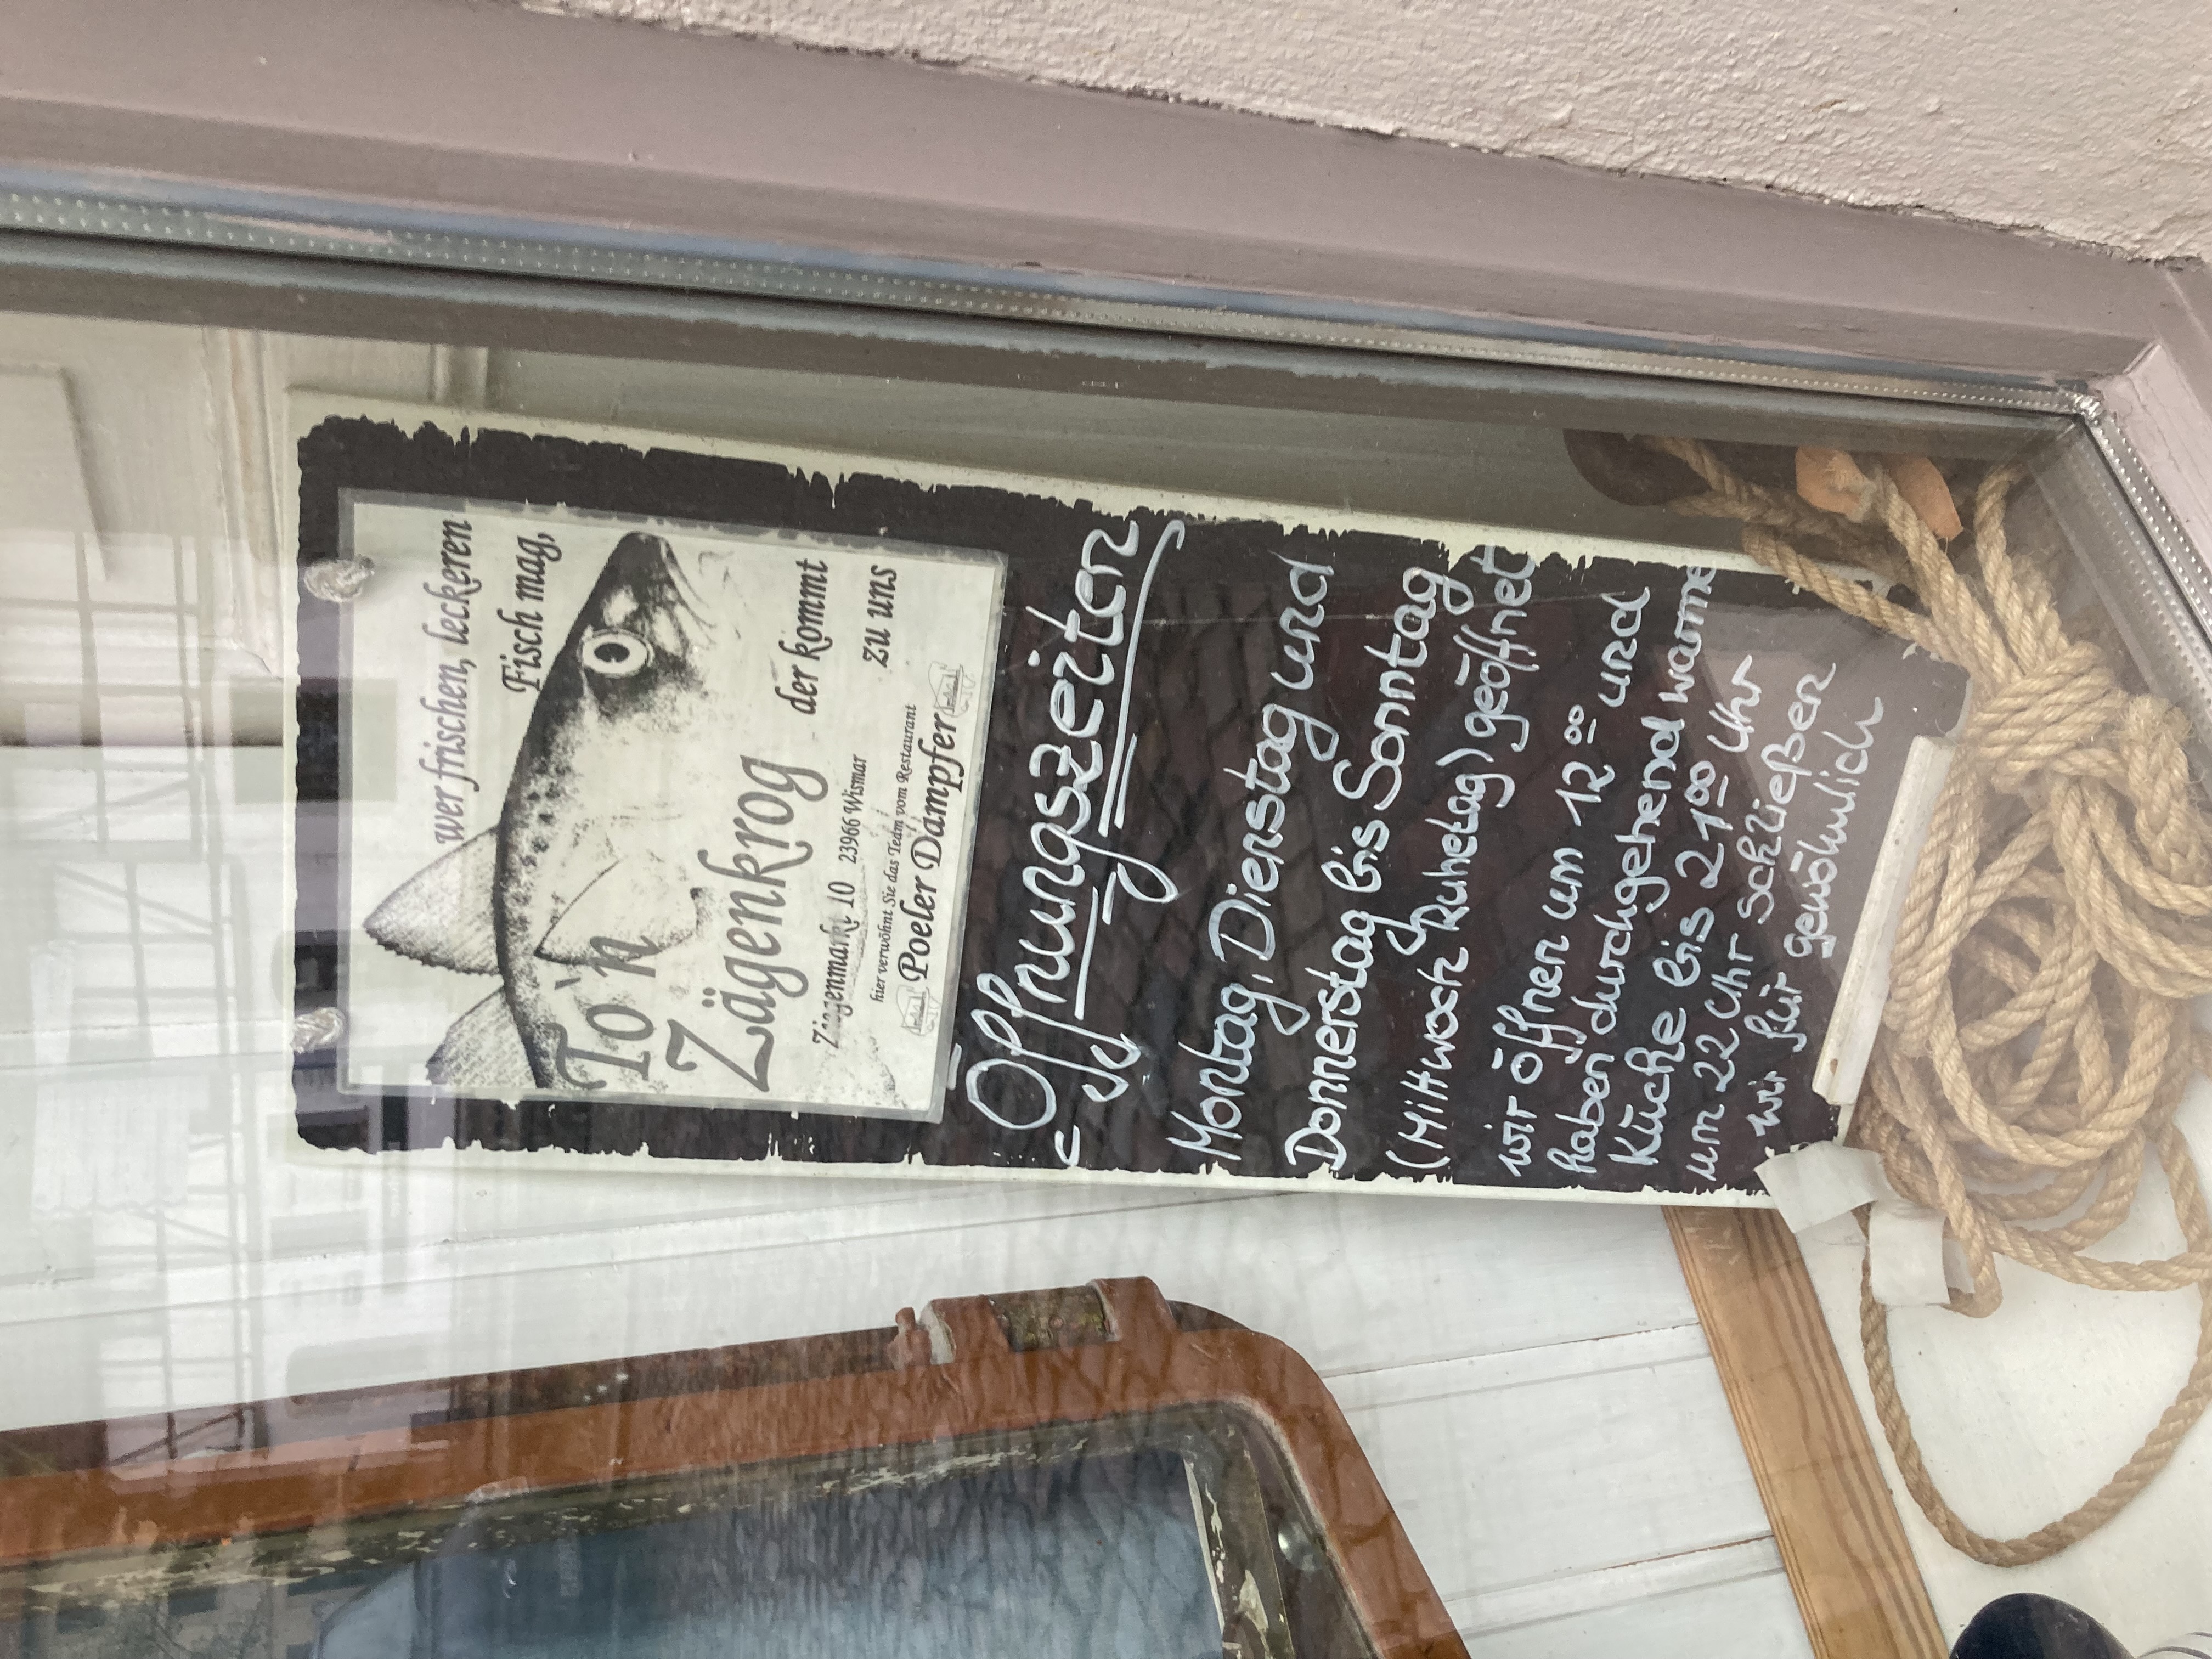 wer frischen, leckeren
Fisch mag,
To`n
Zägenkrog
der kommt
zu uns
Ziegenmarkt 10 23966 Wismar
hier verwöhnt Sie das Team vom Restaurant
Poeler Dampfer
Öffnungszeiten
Montag, Dienstag und
Donnerstag bis Sonntag
(Mittwoch Ruhetag) geöffnet
wir öffnen um 12⁰⁰ und
haben durchgehend warme
Küche bis 21⁰⁰ Uhr
um 22 Uhr schließen
wir für gewöhnlich